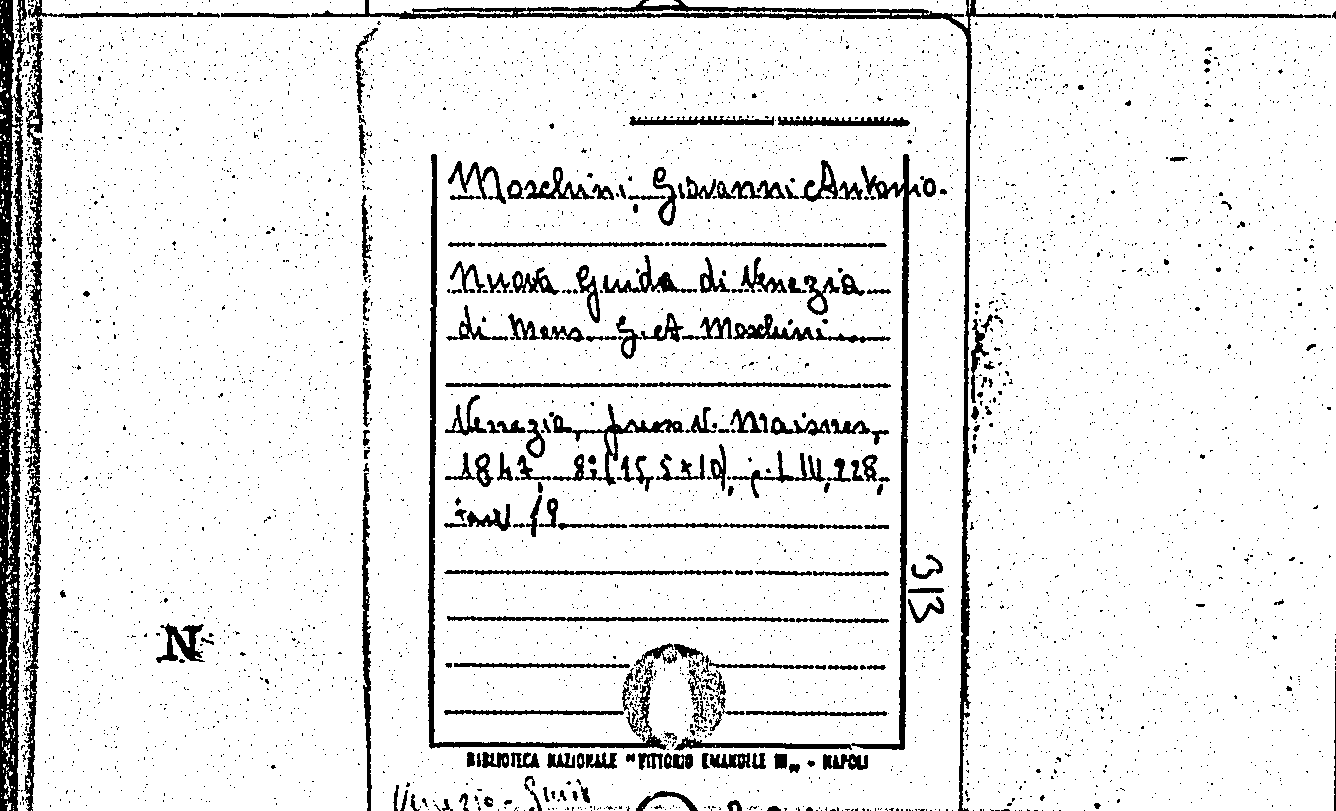 Moschini, Giovanni Antonio.
Nuova Guida di Venezia
di Mons. G. A Moschini...
Venezia, presso N. Maisner,
1847 8º (15,5x10), p. LIII, 228,
tavv /9.
3/3
N
BIBLIOTECA NAZIONALE "VITTORIO EMANUELE III„ - NAPOLI
Venezia - Guid